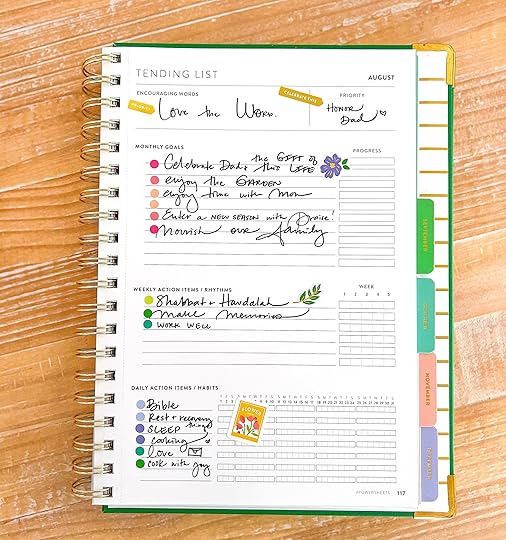 TENDING LIST
AUGUST
ENCOURAGING WORDS
PRIORITY
PRIORITY
CELEBRATE THIS
Love the Word.
Honor
Dad
MONTHLY GOALS
PROGRESS
Celebrate Dad & the GIFT of this LIFE
enjoy the GARDEN
enjoy time with Mom
Enter a NEW SEASON with Praise!
Nourish our family
WEEKLY ACTION ITEMS / RHYTHMS
WEEK
1 2 3 4 5
Shabbat + Havdalah
Make Memories
WORK WELL
DAILY ACTION ITEMS / HABITS
Bible
Rest + recovery
SLEEP things
cooking
love
cook with joy
FLOWER
#POWERSHEETS 117
SEPTEMBER
OCTOBER
NOVEMBER
DECEMBER